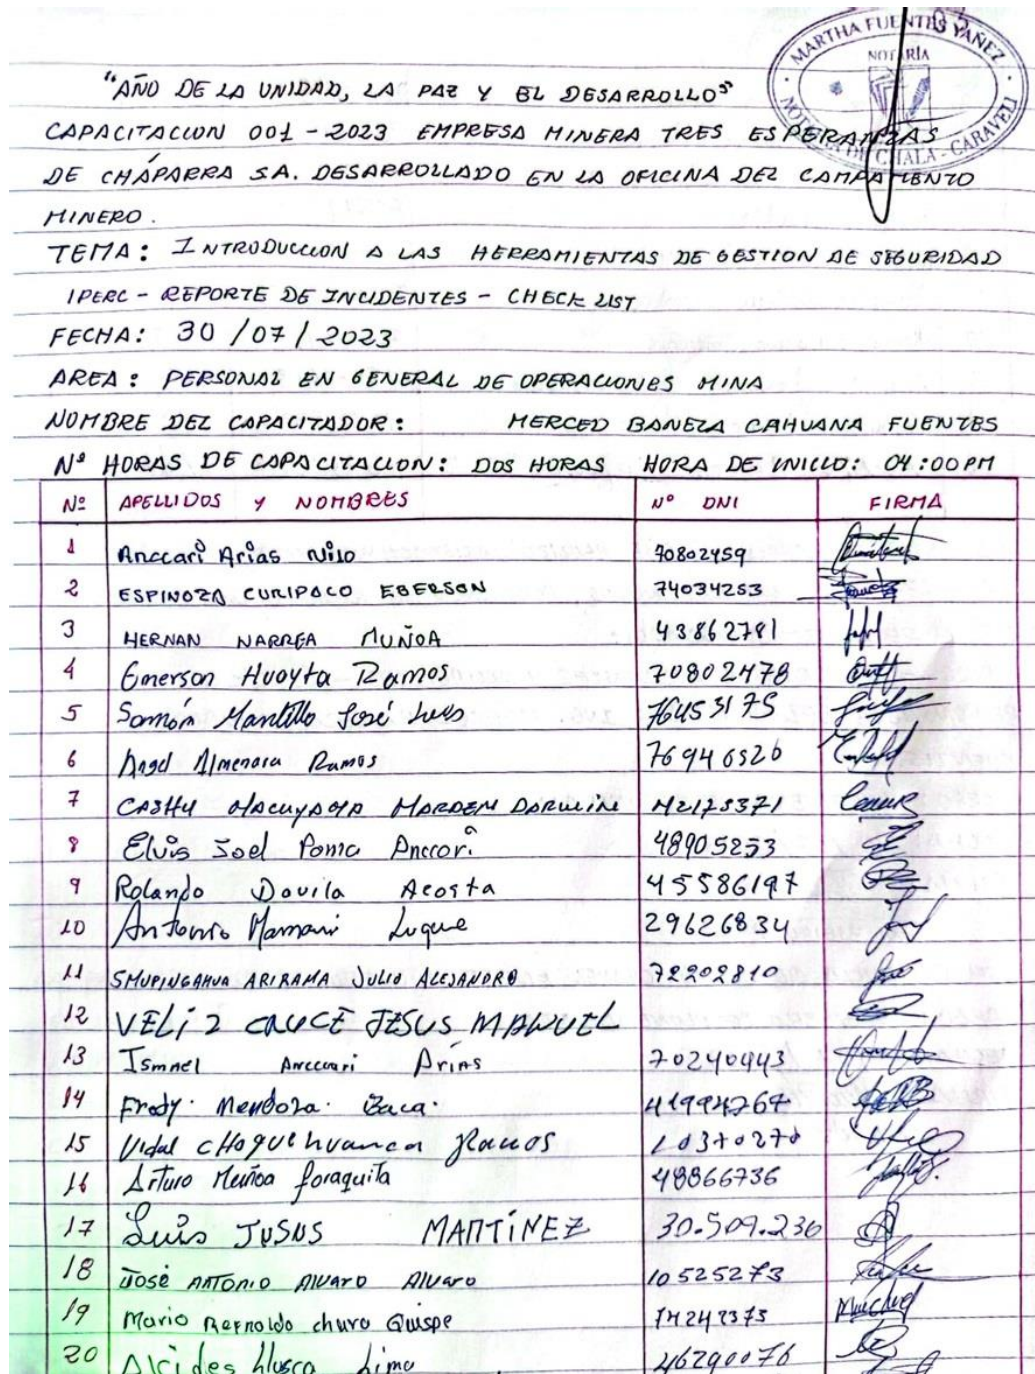 MARTHA FUENTES YAÑEZ
NOTARÍA
NOTARIA DE CHALA - CARAVELI
"AÑO DE LA UNIDAD, LA PAZ Y EL DESARROLLO"
CAPACITACION 001 - 2023 EMPRESA MINERA TRES ESPERANZAS
DE CHÁPARRA S.A. DESARROLLADO EN LA OFICINA DEL CAMPAMENTO
MINERO.
TEMA: INTRODUCCION A LAS HERRAMIENTAS DE GESTION DE SEGURIDAD
IPERC - REPORTE DE INCIDENTES - CHECK LIST
FECHA: 30/07/2023
AREA: PERSONAL EN GENERAL DE OPERACIONES MINA
NOMBRE DEL CAPACITADOR: MERCED BANEZA CAHUANA FUENTES
Nº HORAS DE CAPACITACION: DOS HORAS HORA DE INICIO: 04:00 PM
Nº APELLIDOS Y NOMBRES Nº DNI FIRMA
1 Anccari Arias Nilo 70802459
2 ESPINOZA CURIPACO EBERSON 74034253
3 HERNAN NARREA MUÑOA 43862781
4 Emerson Huayta Ramos 70802478
5 Samón Mantillo José Luis 76453175
6 Angel Almenara Ramos 76946526
7 CASHU MACUYAMA MARDEM DARWIN 42175371
8 Elvis Joel Poma Anccori 48905253
9 Rolando Davila Acosta 45586197
10 Antonio Mamani Luque 29626834
11 SHUPINGAHUA ARIRAMA JULIO ALEJANDRO 72202810
12 VELIZ CAUCE JESUS MANUEL
13 Ismael Anccari Arias 70240443
14 Fredy. Mendoza. Baca. 41994764
15 Vidal CHoquehuanca Ramos 10370270
16 Arturo Muñoa 48866736
17 Luis JUSUS MARTÍNEZ 30.509.236
18 José ANTONIO Alvaro Alvaro 10525273
19 Mario Reynoldo chura Quispe 74242373
20 Alcides Llusca Lima 46290076